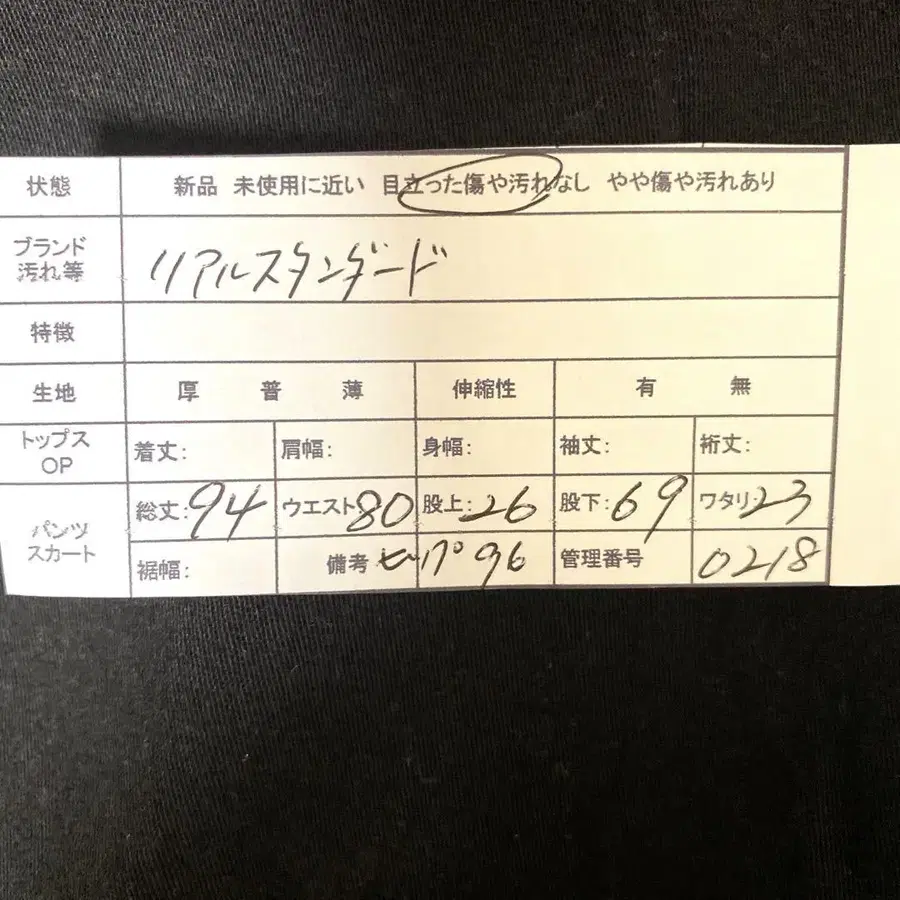 状態 新品 未使用に近い 目立った傷や汚れなし やや傷や汚れあり
ブランド
汚れ等
リアルスタンダード
特徴
生地 厚 普 薄 伸縮性 有 無
トップス
OP
着丈: 肩幅: 身幅: 袖丈: 裄丈:
パンツ
スカート
総丈:94 ウエスト80 股上:26 股下:69 ワタリ:23
裾幅: 備考 ヒップ96 管理番号 0218